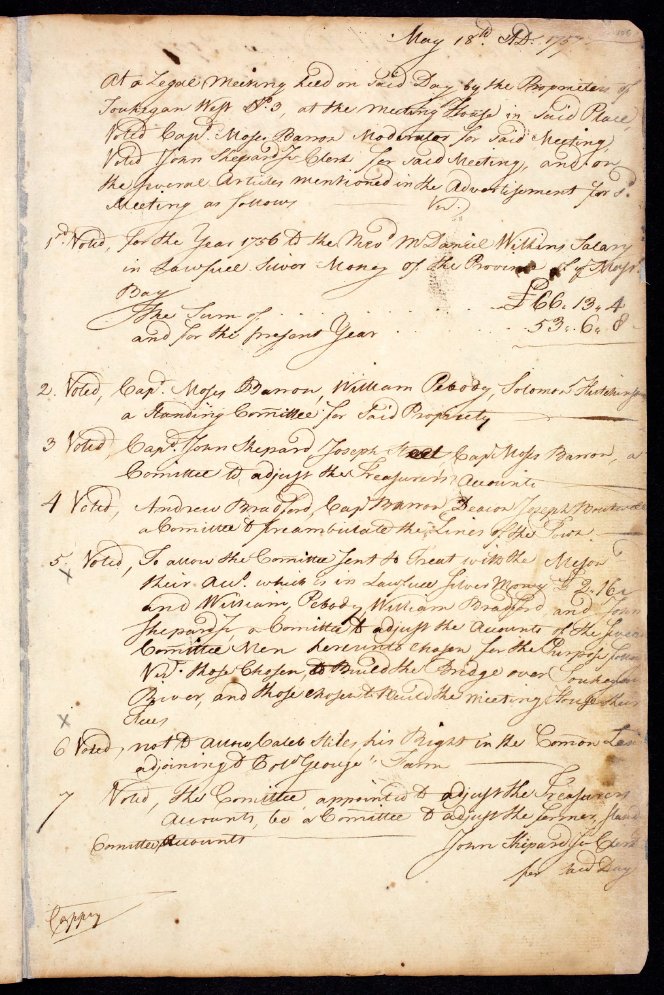 May 18th AD. 1757
At a Legal Meeting held on Said Day by the Proprieters of
Souhegan West No. 3 at the Meeting House in Said Place,
Voted Capt. Moses Barron Moderator for Said Meeting,
Voted John Shepard Jr. Clerk for Said Meeting, and on
the several Articles mentioned in the Advertisement for sd.
Meeting as follows Viz.
1st. Voted, for the Year 1756 to the Revd. Mr. Daniel Wilkins Salary
in Lawfull Silver Money of the Province of
Bay
the Sum of £66,, 13,, 4
and for the present Year 53,, 6,, 8
2. Voted, Capt. Moses Barron, William Pebody, Solomon Hutchinson
a Standing Comittee for Said Propriety
3 Voted Capt. John Shepard, Joseph Capt. Moses Barron, a
Comittee to adjust the Treasurers Accounts
4 Voted, Andrew Bradford, Capt. Barron Deacon Joseph Boutwell
a Comittee to Preambulate the Lines of the Town
5. Voted, To allow the Comittee sent to Treat with the Mason
their Act. which is in Lawfull Silver Money 2,,16
and William Pebody William Bradford and John
Shepard Jr. a Comittee to adjust the Accounts of the
Comittee Men chosen for the Purpose
Vizt. those Chosen to Build the Bridge over Souhegan
River, and those chosen to build the Meeting House
x
x
6 Voted, not to allow Caleb Stiles his Right in the Comon Land
adjoining to Colo. George's Farm
7 Voted, the Comittee appointed to adjust the Treasurers
Accounts, be a Comittee to adjust the former
Comittee Accounts
John Shepard Jr. Clerk
for said Day
Coppy